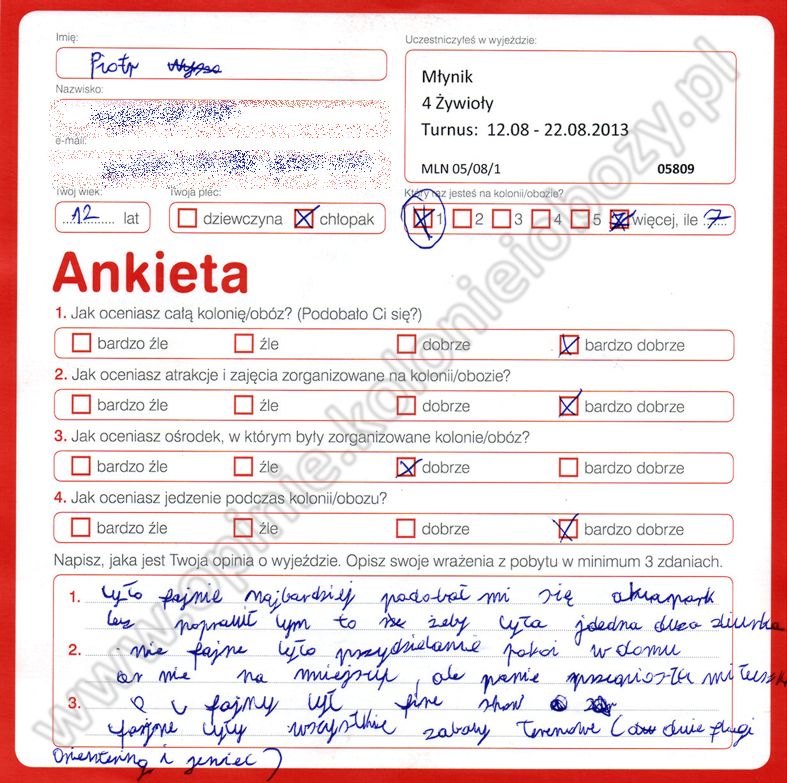 Imię:
Piotr
Uczestniczyłeś w wyjeździe:
Młynik
4 Żywioły
Turnus: 12.08 - 22.08.2013
MLN 05/08/1 05809
Nazwisko:
e-mail:
Twój wiek:
12 lat
Twoja płeć:
dziewczyna chłopak
Który raz jesteś na kolonii/obozie?
1 2 3 4 5 więcej, ile 7
Ankieta
1. Jak oceniasz całą kolonię/obóz? (Podobało Ci się?)
bardzo źle źle dobrze bardzo dobrze
2. Jak oceniasz atrakcje i zajęcia zorganizowane na kolonii/obozie?
bardzo źle źle dobrze bardzo dobrze
3. Jak oceniasz ośrodek, w którym były zorganizowane kolonie/obóz?
bardzo źle źle dobrze bardzo dobrze
4. Jak oceniasz jedzenie podczas kolonii/obozu?
bardzo źle źle dobrze bardzo dobrze
Napisz, jaka jest Twoja opinia o wyjeździe. Opisz swoje wrażenia z pobytu w minimum 3 zdaniach.
1. było fajnie najbardziej podobał mi się akwapark
bez poprawił bym to że żeby była jedna
2. nie fajne było przydzielanie pokoi w domu
a nie na miejscu, ale
3. fajny był fire show
fajne były wszystkie zabawy terenowe ( dwie flagi
orientering i jeniec )
www.opinie.kolonieiobozy.pl